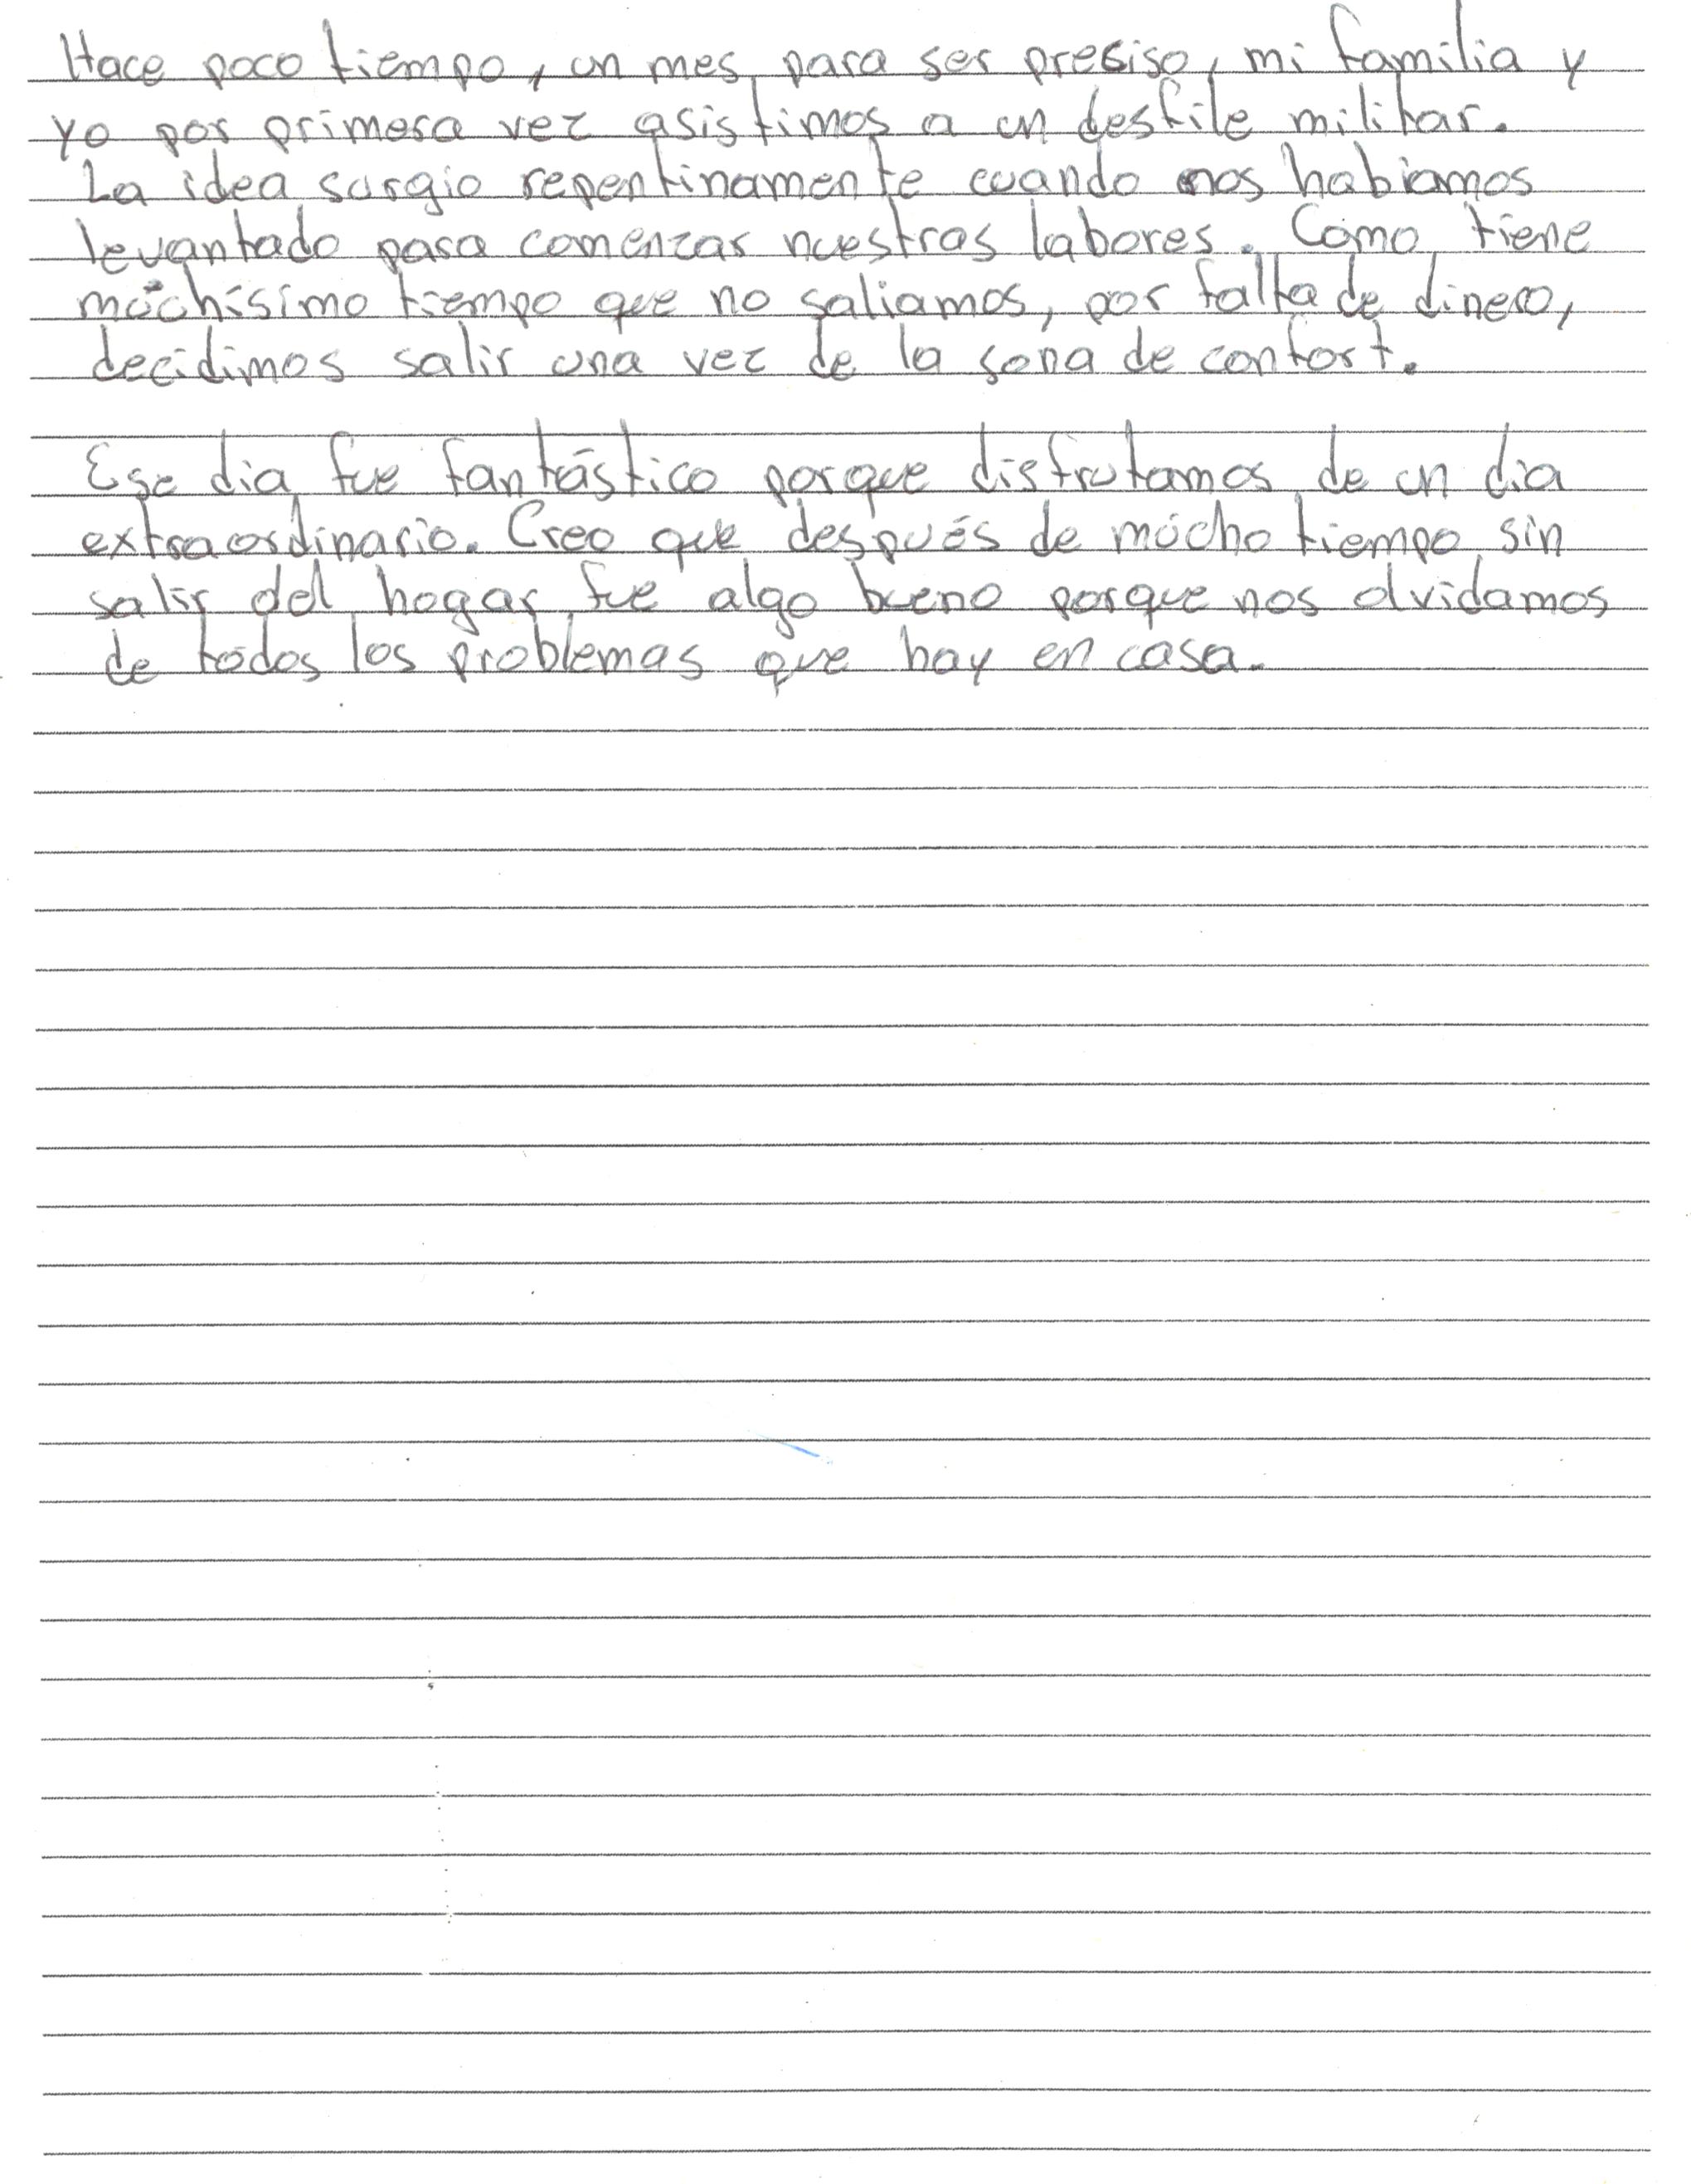 Hace poco tiempo, un mes para ser presiso, mi familia y
yo por primera vez asistimos a un desfile militar.
La idea surgio repentinamente cuando nos habiamos
levantado para comenzar nuestras labores. Cómo tiene
múchísimo tiempo que no saliamos, por falta de dinero,
decidimos salir una vez de la sona de confort.
Ese dia fue fantástico porque disfrutamos de un dia
extraordinario. Creo que después de múcho tiempo sin
salir del hogar fue algo bueno porque nos olvidamos
de todos los problemas que hay en casa.